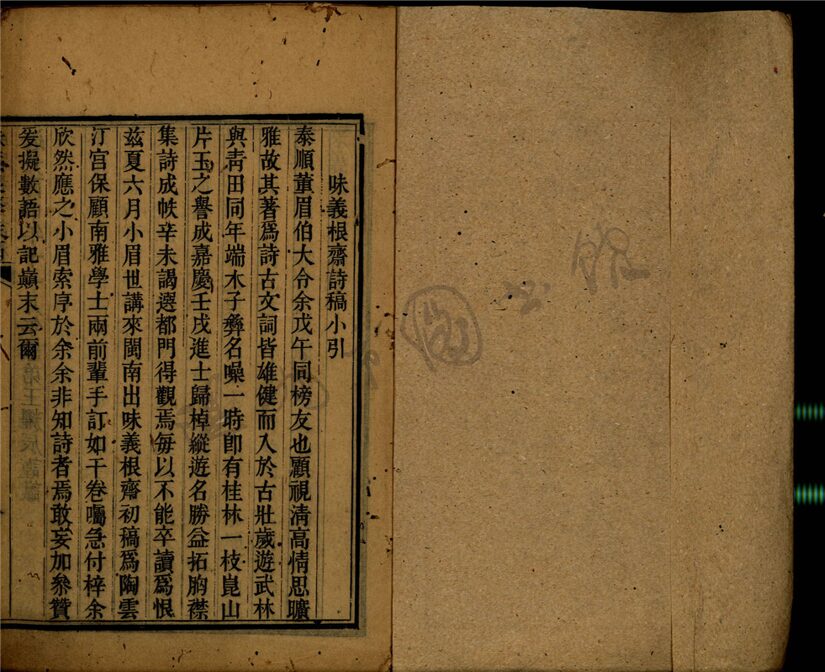 味義根齋詩稿小引
泰順董眉伯大令余戊午同榜友也顧視清高情思曠
雅故其著爲詩古文詞皆雄健而入於古壯歲遊武林
與青田同年端木子彝名噪一時即有桂林一枝崑山
片玉之譽成嘉慶壬戌進士歸棹縱遊名勝益拓胸襟
集詩成帙辛未謁選都門得觀焉每以不能卒讀爲恨
茲夏六月小眉世講來閩南出味義根齋初稿爲陶雲
汀宫保顧南雅學士兩前輩手訂如干卷囑急付梓余
欣然應之小眉索序於余余非知詩者焉敢妄加參贊
爰擬數語以記巔末云爾